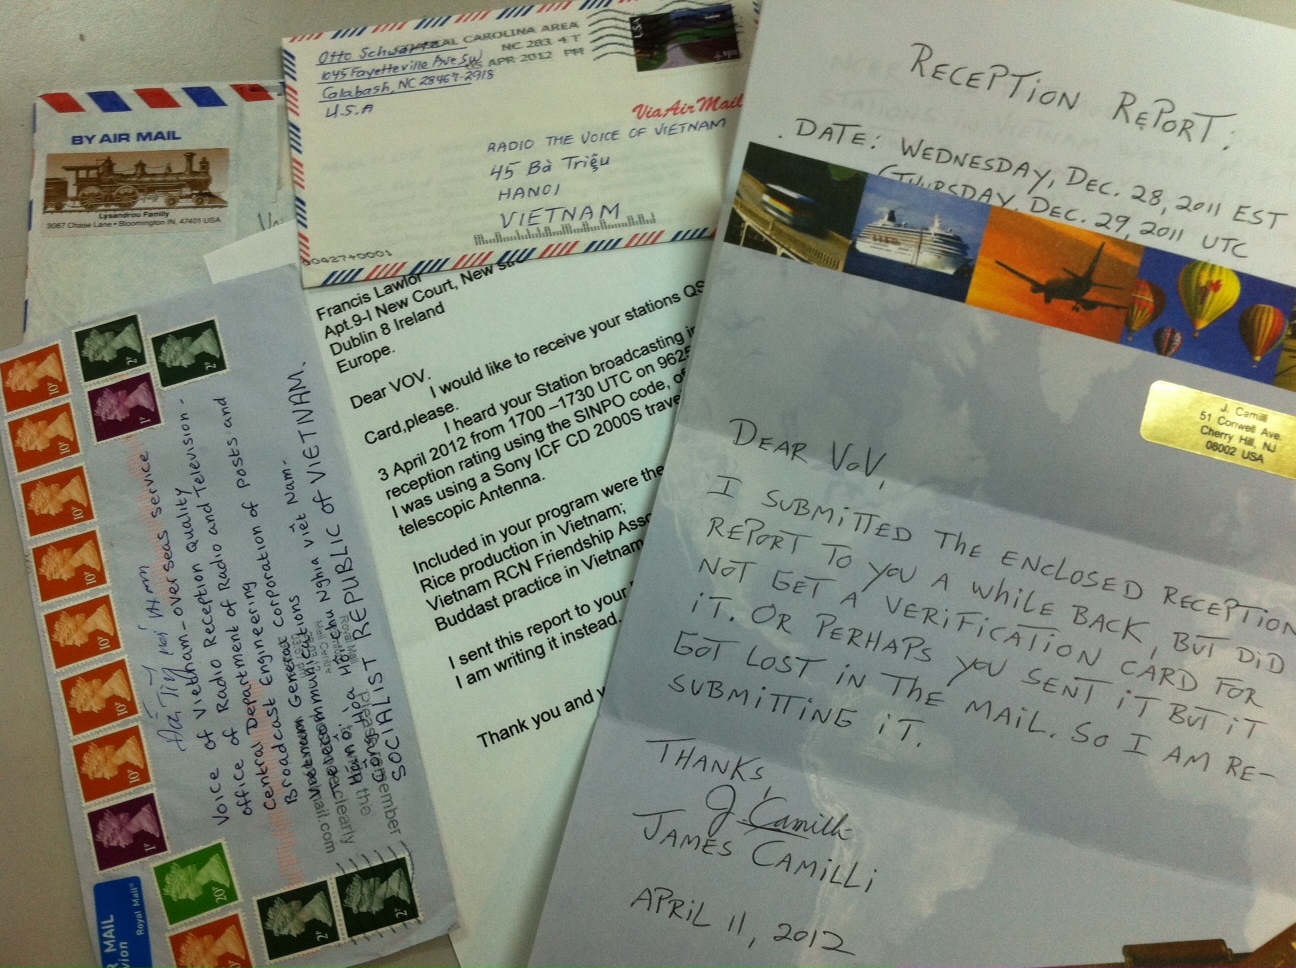 BY AIR MAIL
Lysandrou Family
3067 Chase Lane • Bloomington IN, 47401-USA
Otto
1045 Fayetteville Ave SW
Calabash, NC 28467-2918
U.S.A
CAROLINA AREA
NC 283 4 T
APR 2012 PM
USA
Via Air Mail
RADIO THE VOICE OF VIETNAM
45 Bà Triệu
HANOI
VIETNAM
Francis Lawlor
Apt.9-I New Court, New
Dublin 8 Ireland
Europe.
Dear VOV.
I would like to receive your stations
Card,please.
I heard your Station broadcasting
3 April 2012 from 1700 –1730 UTC on 9625
reception rating using the SINPO code,
I was using a Sony ICF CD 2000S
telescopic Antenna.
Included in your program were the
Rice production in Vietnam;
Vietnam RCN Friendship
Buddast practice in Vietnam
I sent this report to your
I am writing it instead.
Thank you and
RECEPTION REPORT:
DATE: WEDNESDAY, DEC. 28, 2011 EST
(THURSDAY, DEC. 29, 2011 UTC
J. Camilli
51 Conwell Ave.
Cherry Hill, NJ
08002 USA
DEAR VOV,
I SUBMITTED THE ENCLOSED RECEPTION
REPORT TO YOU A WHILE BACK, BUT DID
NOT GET A VERIFICATION CARD FOR
IT. OR PERHAPS YOU SENT IT BUT IT
GOT LOST IN THE MAIL. SO I AM RE-
SUBMITTING IT.
THANKS,
J Camilli
JAMES CAMILLI
APRIL 11, 2012
Voice of Vietnam - overseas service
Office of Radio Reception Quality
Central Department of Radio and Television -
Broadcast Engineering
Vietnam General Corporation of Posts and
Telecommunications
Cộng Hòa Xã Hội chu Nghia Việt Nam -
SOCIALIST REPUBLIC of VIETNAM.
Royal Mail